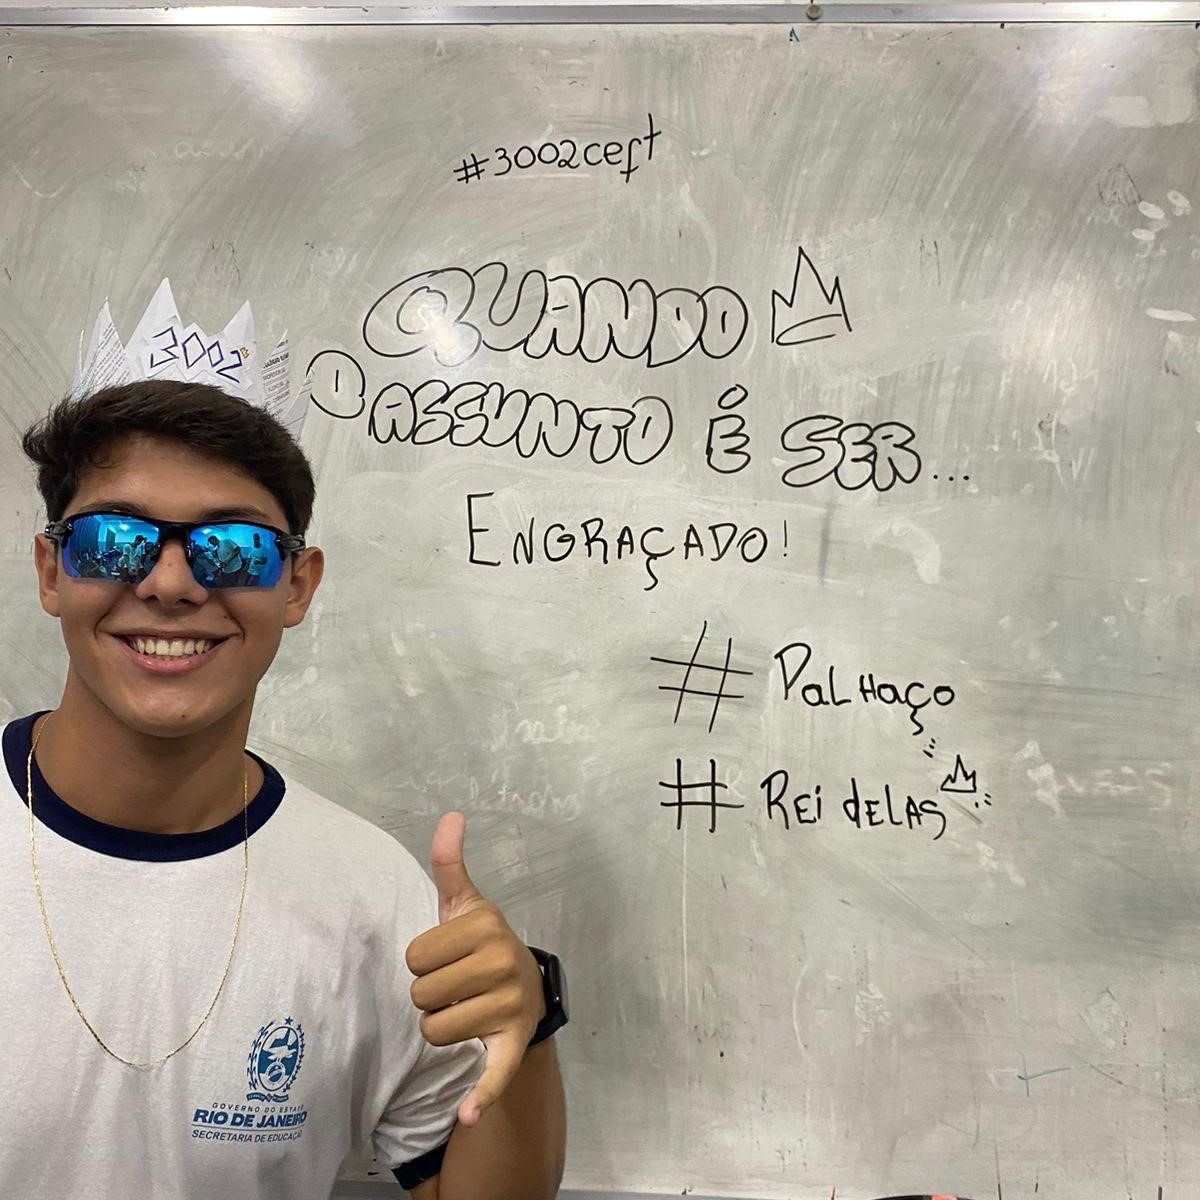 #3002ceft
QUANDO
O ASSUNTO É SER...
ENGRAÇADO!
# PALHAÇO
# REI DELAS
3002
GOVERNO DO ESTADO
RIO DE JANEIRO
SECRETARIA DE EDUCAÇÃO